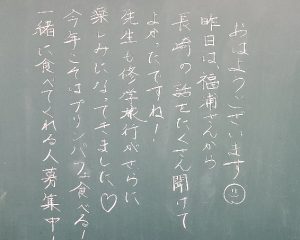 おはようございます
昨日は福浦さんから
長崎の話をたくさん聞けて
よかったですね!
先生も修学旅行がさらに
楽しみになってきました♡
今年こそはプリンパフェ食べる!
一緒に食べてくれる人募集中!